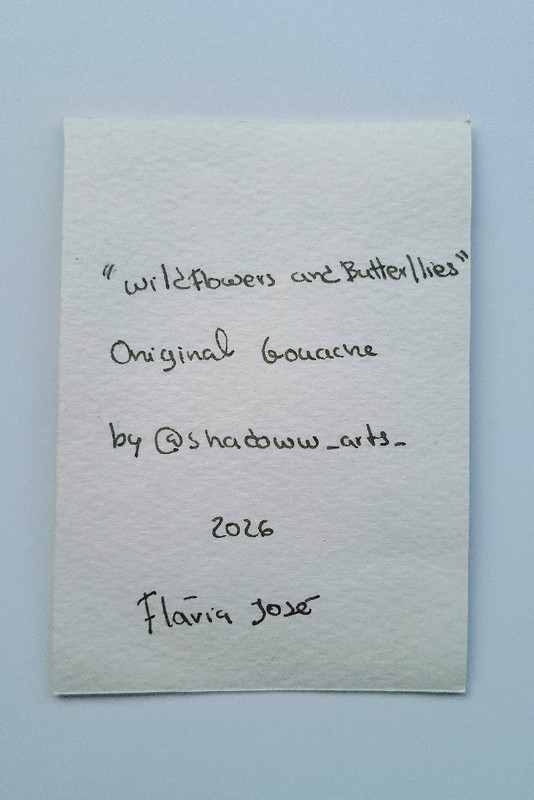 "Wildflowers and Butterflies"
Original Gouache
by @shadoww_arts_
2026
Flávia José